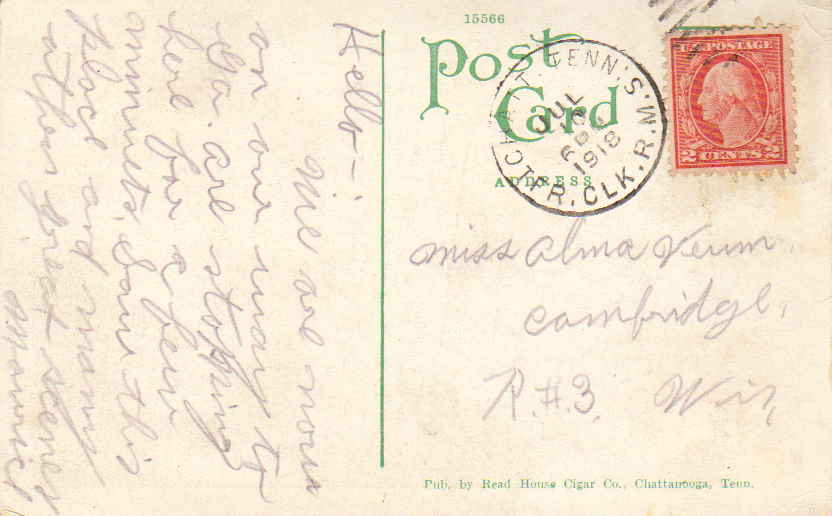 15566
Post
Card
CHATT. TENN. S.W.
JUL
1918
TR. CLK. R.
U.S. POSTAGE
2 CENTS 2
ADDRESS
Hello—
We are now
on our way to
Ga. are stopping
here for a few
minuets. Saw this
place and many
other great scenes
Miss Alma Veum.
Cambridge,
R.#.3. Wis,
Pub. by Read House Cigar Co., Chattanooga, Tenn.